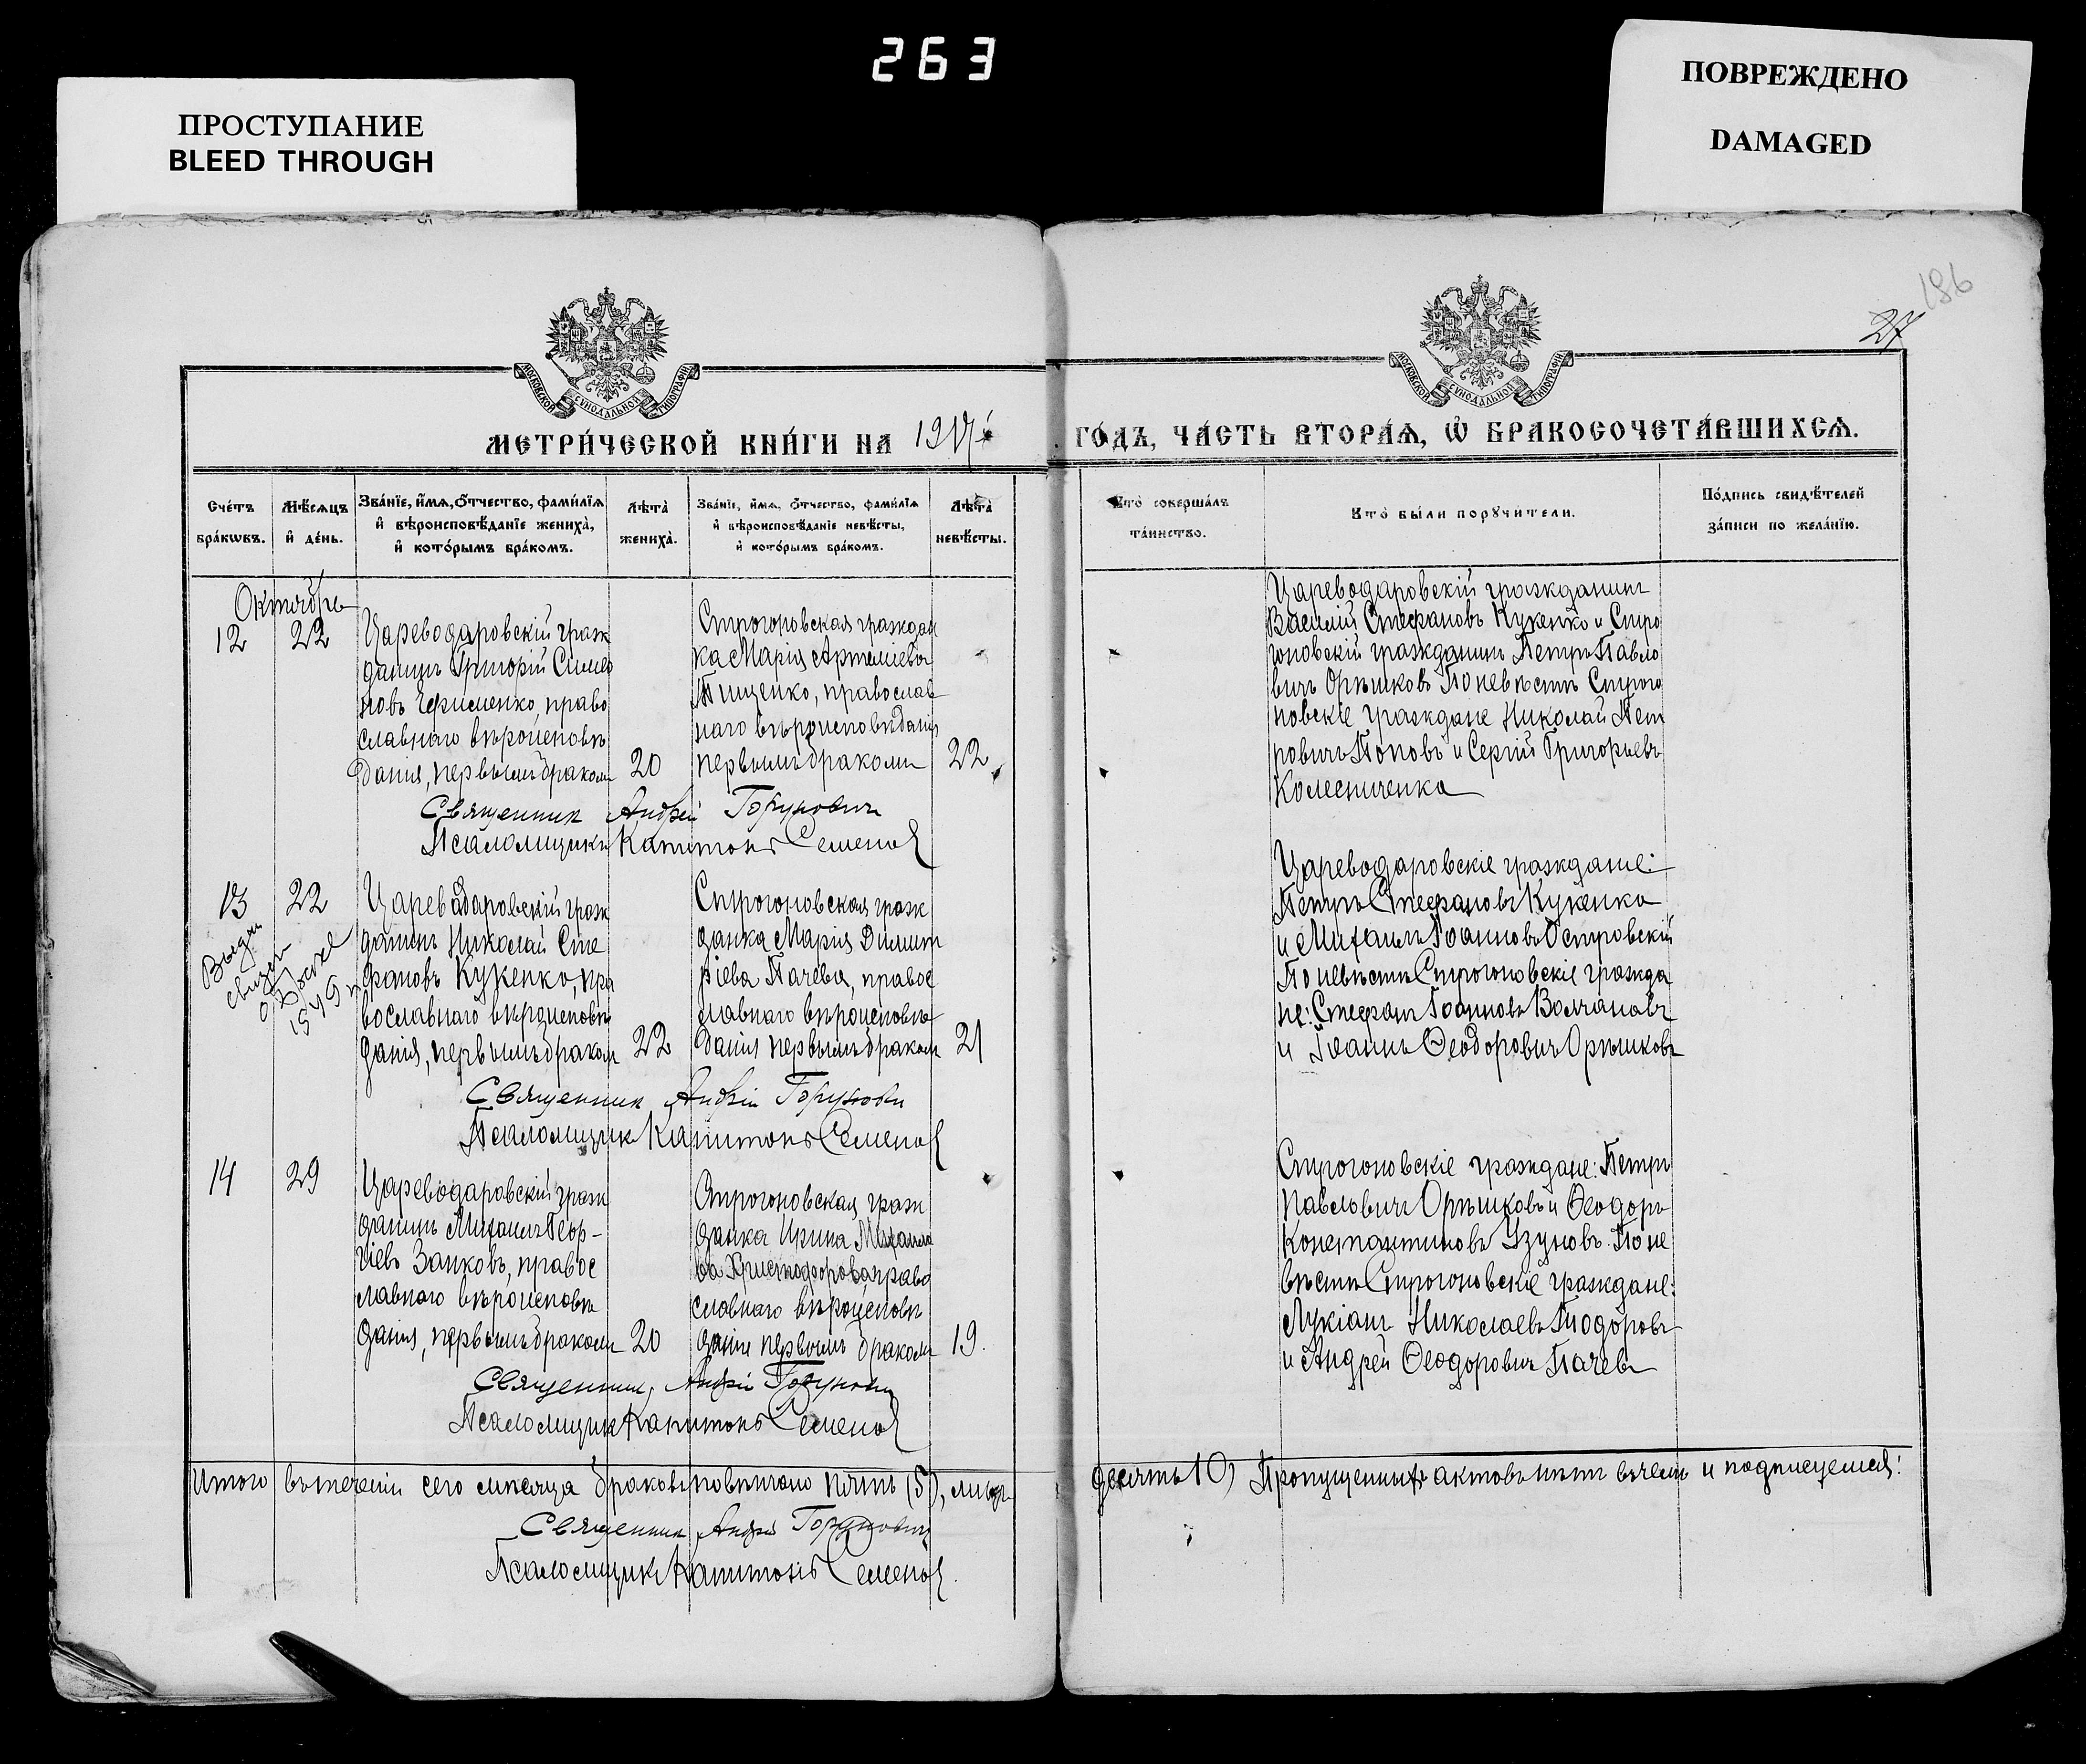 263
ПРОСТУПАНИЕ
BLEED THROUGH
ПОВРЕЖДЕНО
DAMAGED
186
27
МОСКОВСКОЙ СѴНОДАЛЬНОЙ ТИПОГРАФІИ
МОСКОВСКОЙ СѴНОДАЛЬНОЙ ТИПОГРАФІИ
МЕТРИ́ЧЕСКОЙ КНИ́ГИ НА 1917 ГО́ДЪ, ЧА́СТЬ ВТОРА́Ѧ, Ѡ҆ БРАКОСОЧЕТА́ВШИХСѦ.
Сче́тъ
бра́кωвъ.
Мѣ́сѧцъ
и҆ де́нь.
Зва́нїе, и҆́мѧ, ѻ҆́тчество, фами́лїѧ
и҆ вѣроисповѣ́данїе жениха̀,
и҆ кото́рымъ бра́комъ.
Лѣ́та
жениха̀.
Зва́нїе, и҆́мѧ, ѻ҆́тчество, фами́лїѧ
и҆ вѣроисповѣ́данїе невѣ́сты,
и҆ кото́рымъ бра́комъ.
Лѣ́та
невѣ́сты.
Кто̀ соверша́лъ
та́инство.
Кто̀ бы́ли порꙋчи́тели.
По́дпись свидѣ́телей
за́писи по жела́нїю.
Октябрь
12
22
Цареводаровскій граж
данинъ Григорій Симео
новъ Ефименко, право
славнаго вѣроисповѣ
данія, первымъ бракомъ
20
Строгоновская граждан
ка Марія Артемиева
Тищенко, православ
наго вѣроисповѣданія
первымъ бракомъ
22
Цареводаровскій гражданинъ
Василій Стефановъ Кукенко и Стро
гоновскій гражданинъ Петръ Павло
вичъ Орѣшковъ По невѣстѣ Строго
новскіе граждане Николай Пет
ровичъ Поповъ и Сергій Григорьевъ
Колесниченко
Священник Андрей Горунович
Псаломщикъ Капитонъ Семенов
13
22
Царевадаровскій граж
данинъ Николай Сте
фановъ Кукенко, пра
вославнаго вѣроисповѣ
данія, первымъ браком
22
Строгоновская граж
данка Марія Димит
ріева Пачева, правос
лавнаго вѣроисповѣ
данія первымъ браком
21
Цареводаровскіе граждане:
Петръ Стефановъ Кукенко
и Михаилъ Іоанновъ Островскій
По невѣстѣ Строгоновскіе гражда
не: Стефанъ Іоанновъ Волчановъ
и Іоаннъ Ѳеодоровичъ Орѣшковъ
Священник Андрій Горунович
Псаломщикъ Капитонъ Семенов
14
29
Цареводаровскій граж
данинъ Михаилъ Геор-
гіевъ Занковъ, правос
лавнаго вѣроисповѣ
данія, первымъ бракомъ
20
Строгоновская граж
данка Ирина Михаило
ва Христофорова право
славнаго вѣроисповѣ
данія первымъ бракомъ
19.
Строгоновскіе граждане: Петръ
Павловичъ Орѣшковъ и Ѳеодоръ
Константиновъ Узуновъ. По не
вѣстѣ Строгоновскіе граждане:
Лукіанъ Николаевъ Тодоровъ
и Андрей Ѳеодоровичъ Пачевъ
Священник Андрій Горунович
Псаломщикъ Капитонъ Семенов
Итого въ теченіи сего мѣсяца браковъ повѣнчано пять (5), лицъ десять 10, Пропущенныхъ актовъ нѣтъ въ чемъ и подписуемся:
Священник Андрій Горунович
Псаломщикъ Капитонъ Семенов.